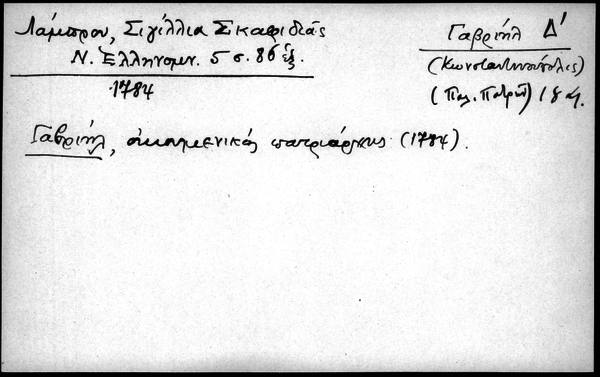 Λάμπρου, Σιγίλλια Σκαφιδιάς
Ν. Ελληνομν. 5 σ. 86 ἑξ.
1784
Γαβριήλ Δ'
(Κωνσταντινουπόλεως)
(Παλ. Πατρῶν) 18
Γαβριήλ, οικουμενικός πατριάρχης (1784).